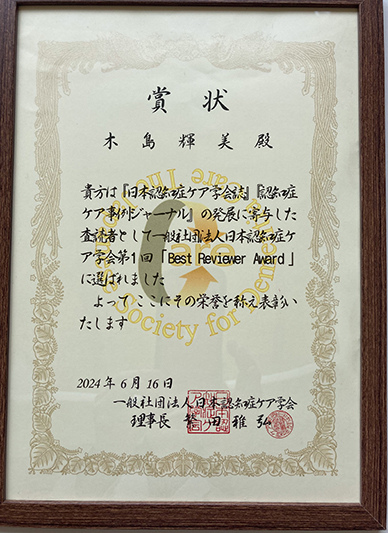 賞状
木島輝美殿
貴方は『日本認知症ケア学会誌』『認知症
ケア事例ジャーナル』の発展に寄与した
査読者として一般社団法人日本認知症ケ
ア学会第1回「Best Reviewer Award」
に選ばれました
よってここにその栄誉を称え表彰い
たします
2024年6月16日
一般社団法人日本認知症ケア学会
理事長 繁田雅弘